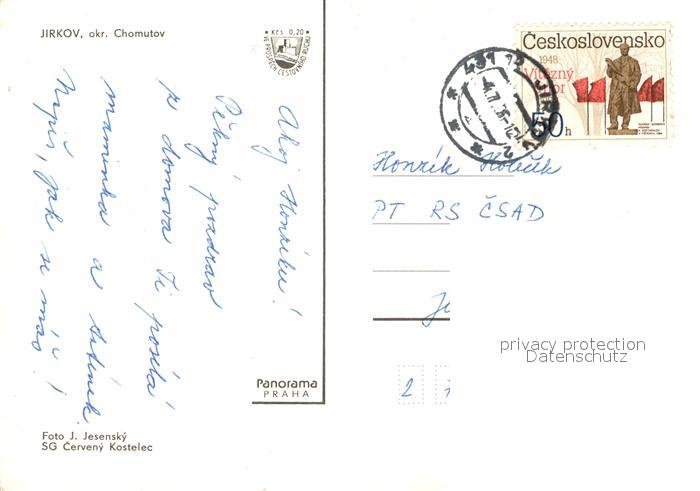 JIRKOV, okr. Chomutov
Kčs 0,20
VE PROSPĚCH CESTOVNÍHO RUCHU
Ahoj Honzíku!
Pěkný pozdrav
z domova Ti posílá
maminka a tatínek.
Napiš, jak se máš!
Panorama
PRAHA
Foto J. Jesenský
SG Červený Kostelec
Československo
1948
Vítězný
únor
50h
431 12 JIRKOV
Honzík
PT RS ČSAD
privacy protection
Datenschutz
2